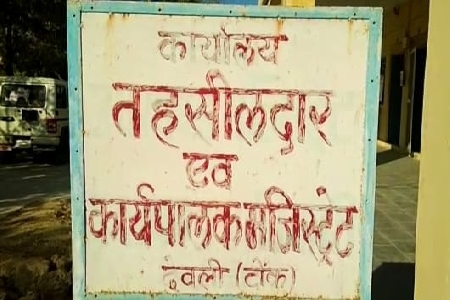 कार्यालय
तहसीलदार
एवं
कार्यपालक मजिस्ट्रेट
देवली (टोंक)